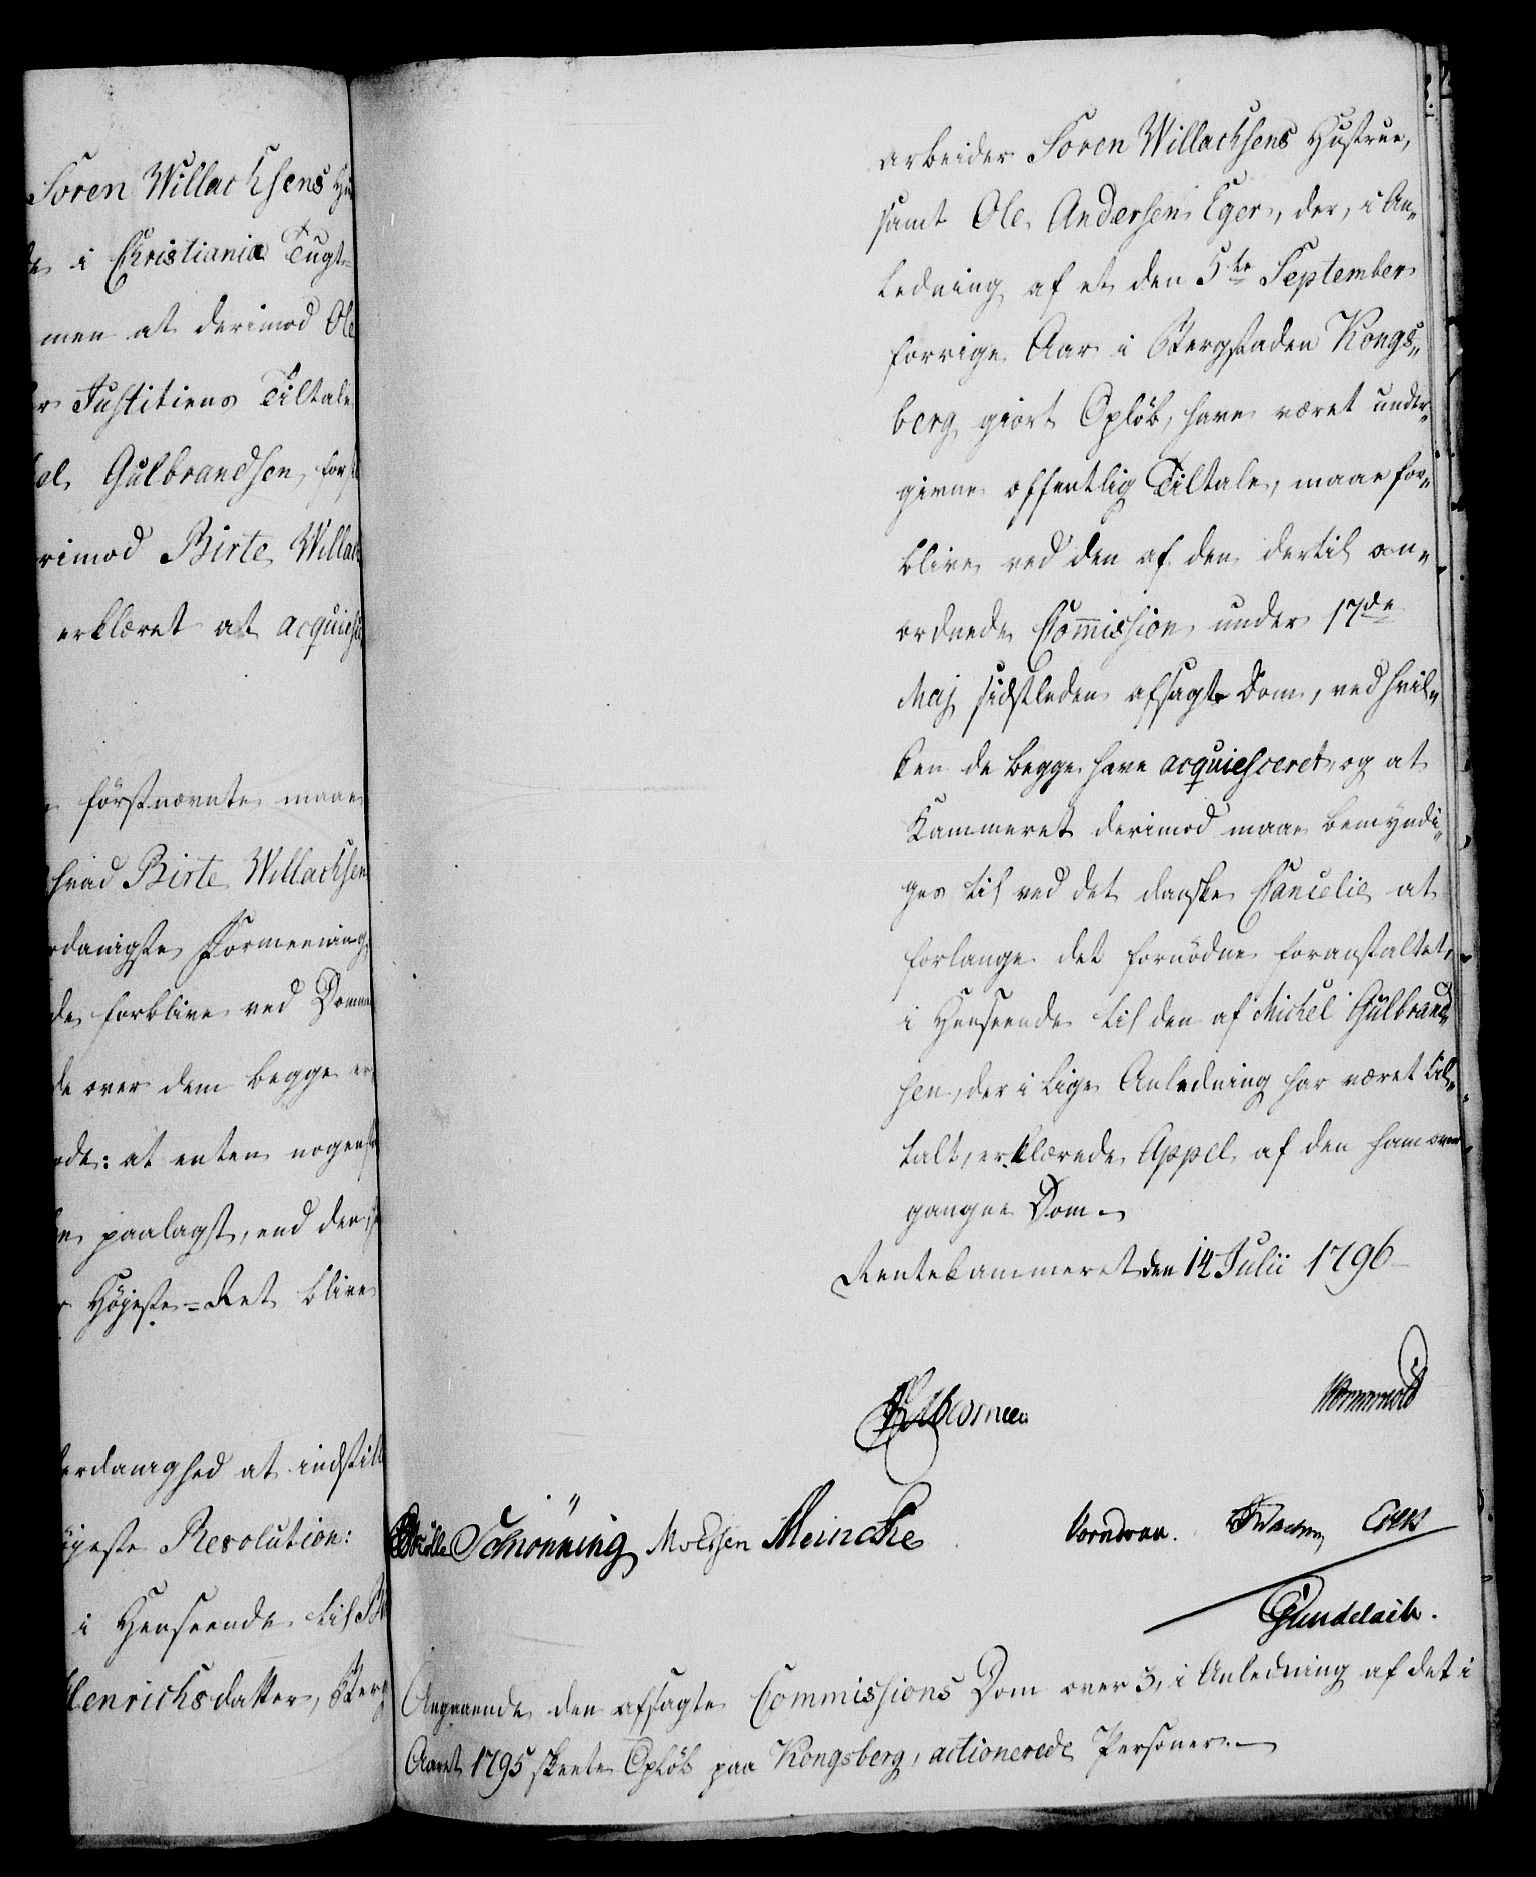 Soren Willachsens
i Christiania Tugt-
men at derimod Ole
Justitiens Tiltale
Gulbrandsen, for
rimod Birte Willach
erklæret at acquie
förstnævnte maae
hvad Birte Willachsen
rdanigste Formeening
forblive ved Dommen
de over dem begge er
ode: at enten nogen
paalagt, end den
Höyeste-Ret blive
erdanighed at indstill
öyeste Resolution:
i Henseende til
Henrichsdatter, Berg
arbeider Soren Willachsens Hustrue,
samt Ole Andersen Eger, der, i An-
ledning af et den 5te September
forrige Aar i Bergstaden Kongs-
berg giort Opløb, have været under-
givne offentlig Tiltale, maae for-
blive ved den af den dertil an-
ordnede Commission under 17de
Maj sidstleden afsagte Dom, ved hvil-
ken de begge have acquiesceret, og at
Kammeret derimod maae bemyndi-
ges til ved det danske Cancelie at
forlange det fornödne foranstaltet,
i Henseende til den af Michel Gulbrand-
sen, der i lige Anledning har været til-
talt, erklærede Appel af den ham over-
gangne Dom.
Rentekammeret den 14 Julii 1796
Schönning Meincke Vorndran.
Gundelach.
Angaaende den afsagte Commissions Dom over 3, i Anledning af det i
Aaret 1795 skeete Opløb paa Kongsberg, actionerede Personer.